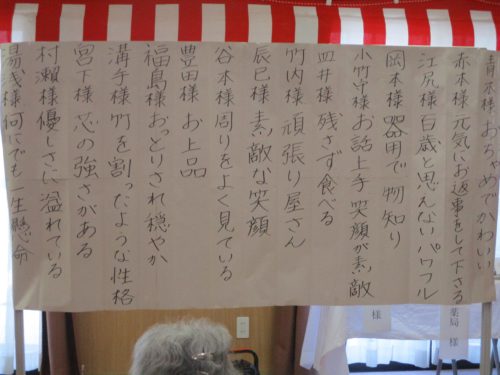 青木様 おちゃめでかわいい
赤木様 元気にお返事をして下さる
江尻様 百歳と思えないパワフル
岡本様 器用で物知り
小竹守様 お話上手 笑顔が素敵
皿井様 残さず食べる
竹内様 頑張り屋さん
辰巳様 素敵な笑顔
谷本様 周りをよく見ている
豊田様 お上品
福島様 おっとりされ穏やか
溝手様 竹を割ったような性格
宮下様 芯の強さがある
村瀬様 優しさに溢れている
湯浅様 何にでも一生懸命
薬局 様
様